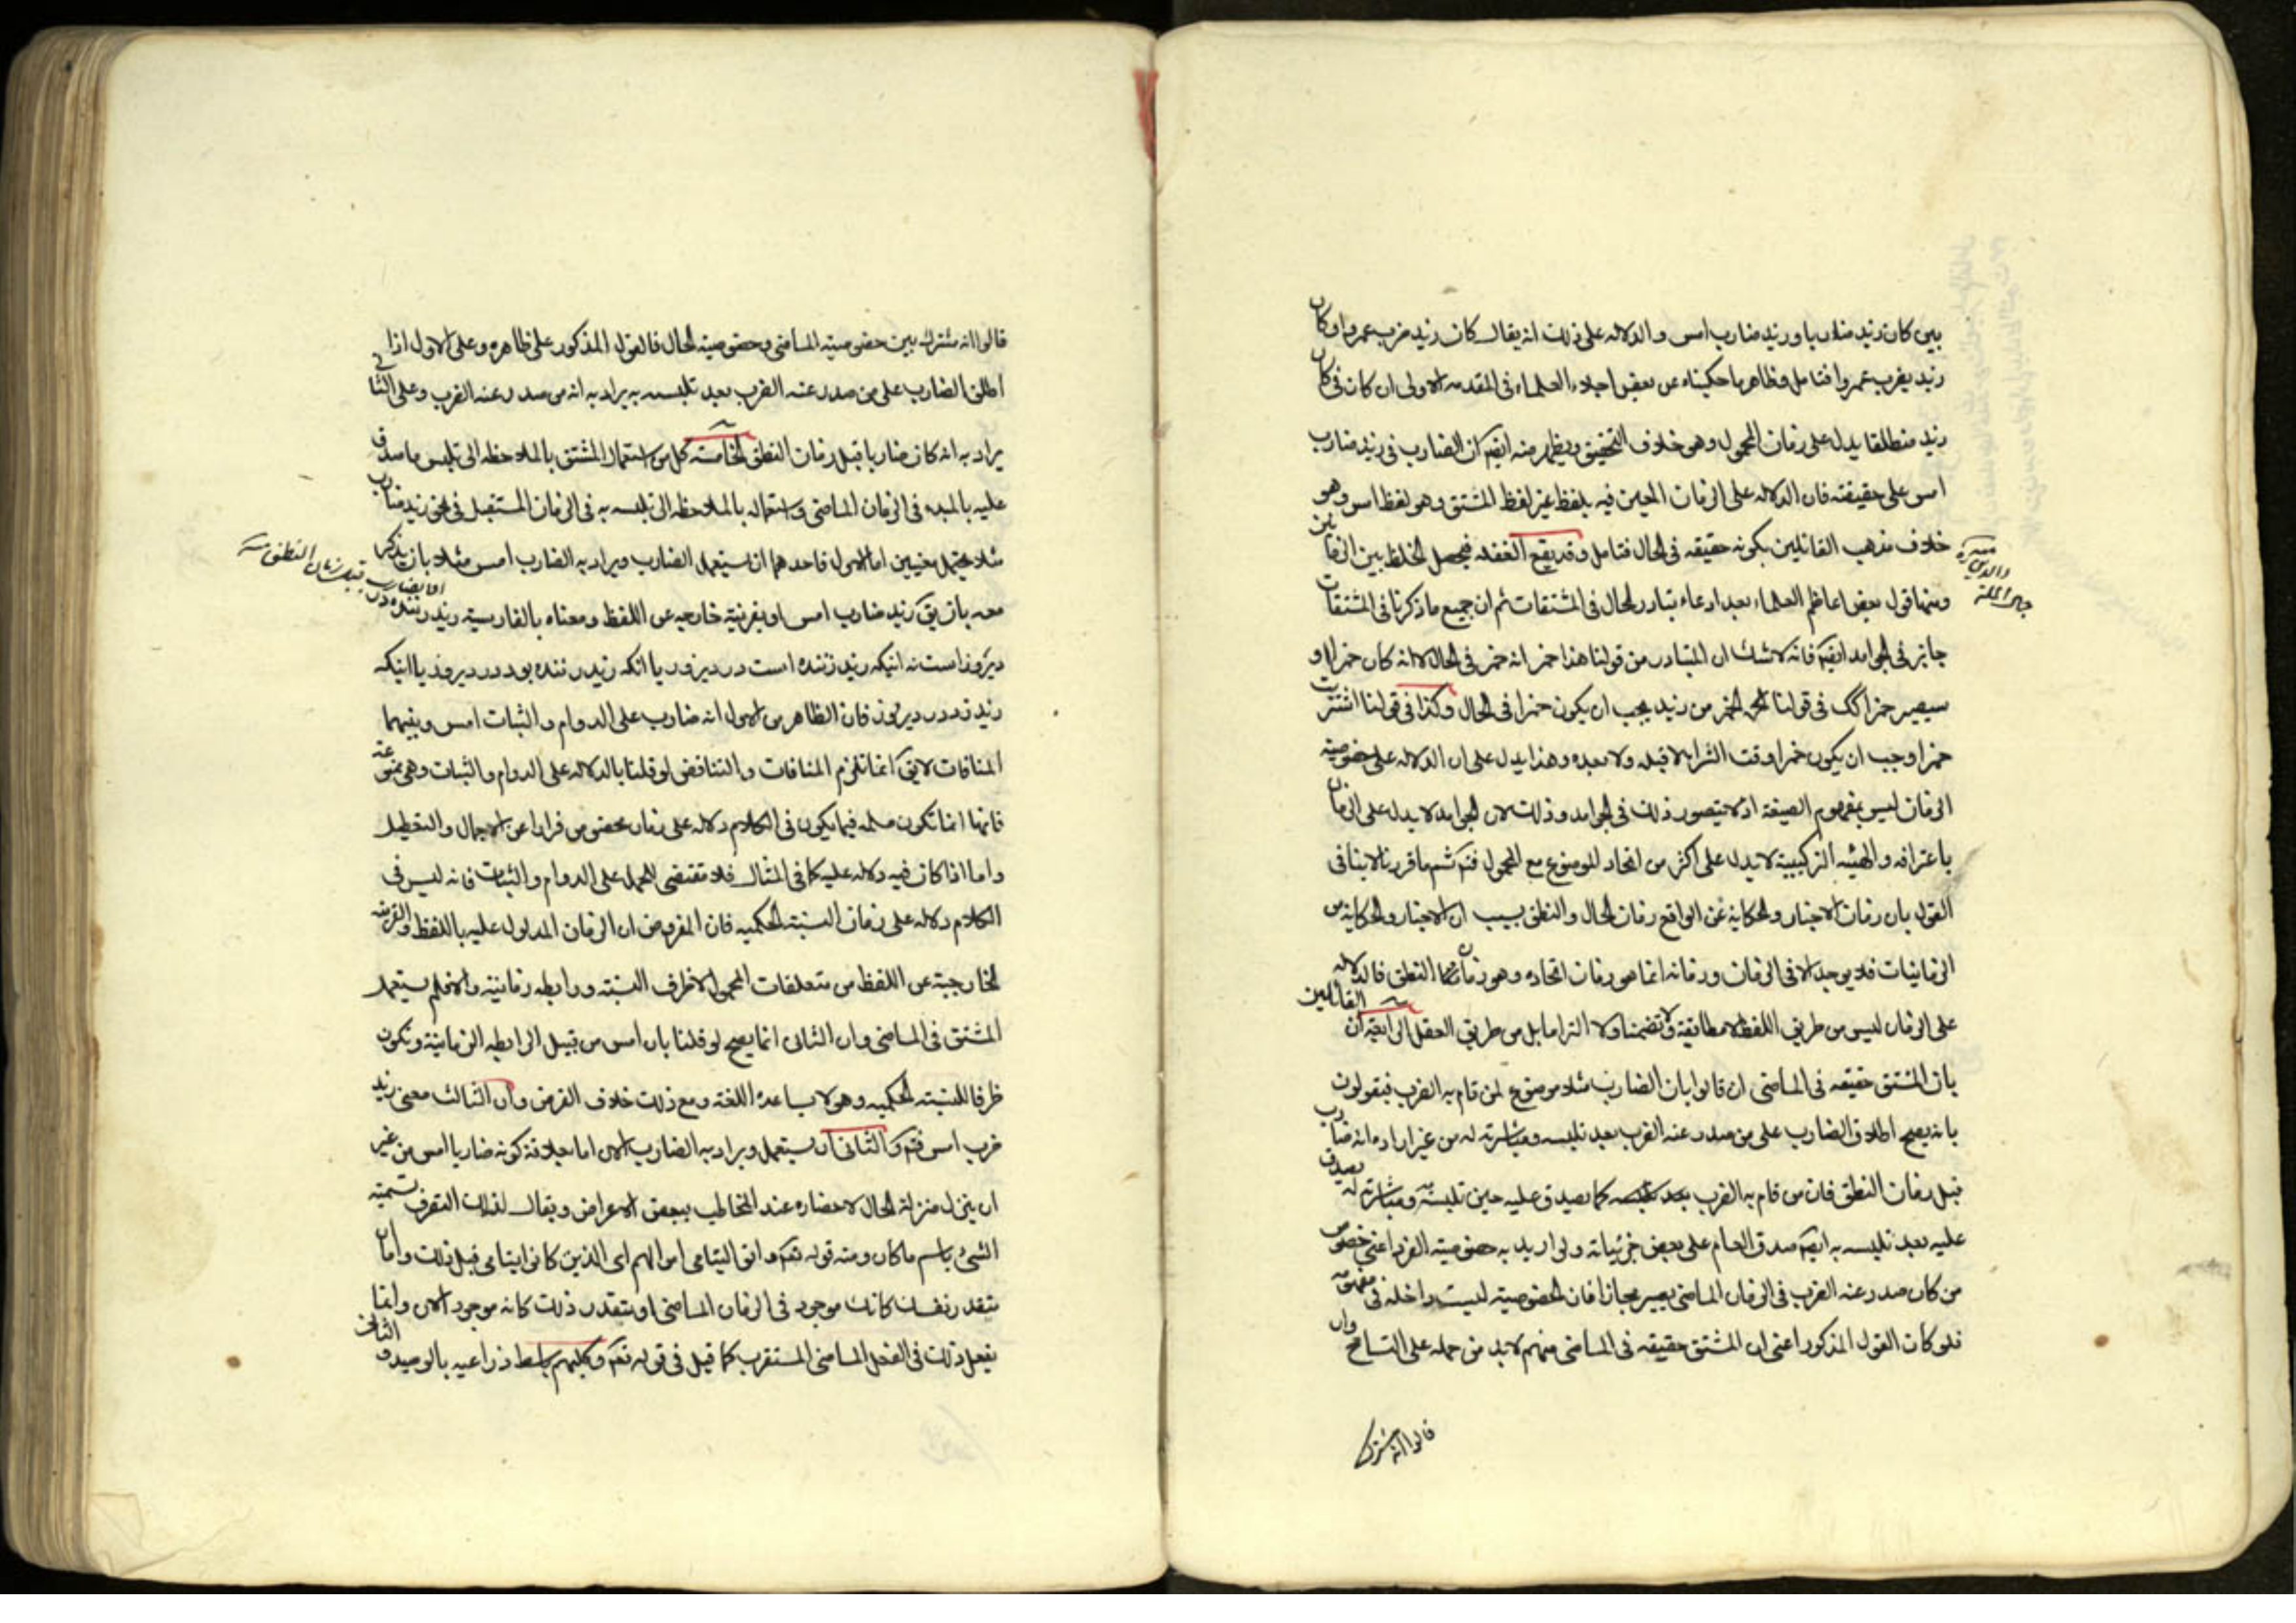 بين كان زيد ضاربا وزيد ضارب امس والدلاله على ذلك انه يقال كان زيد ضرب عمروا وكان
زيد يضرب عمروا فتامل وظاهر ما حكيناه عن بعض اجلاء العلماء فى المقدمه الاولى ان كان فى كان
زيد منطلقا يدل على زمان المحمول وهو خلاف التحقيق ويظهر منه ايضا ان الضارب فى زيد ضارب
امس على حقيقته فان الدلاله على الزمان المعين فيه بلفظ غير لفظ المشتق وهو لفظ امس وهو
خلاف مذهب القائلين بكونه حقيقه فى الحال فتامل وقد يقع الغفله فيحصل الخلط بين الزمانين
ومنها قول بعض اعاظم العلماء بعد ادعاء تبادر الحال فى المشتقات ثم ان جميع ما ذكرنا فى المشتقات
جار فى الجوامد ايضا فانه لا شك ان المتبادر من قولنا هذا خمر انه خمر فى الحال لا انه كان خمرا او
سيصير خمرا كك فى قولنا الخمر من زيد يجب ان يكون خمرا فى الحال وكذا فى قولنا اشتريت
خمرا وجب ان يكون خمرا وقت الشراء لا قبله ولا بعده وهذا يدل على ان الدلاله على خصوصية
الزمان ليس بمفهوم الصيغة اذ لا يتصور ذلك فى الجوامد وذلك لان الجوامد لا يدل على الزمان
باعترافه والهيئه التركيبية لا يدل على اكثر من اتحاد الموضوع مع المحمول فتم ثم ما قررنا لا ينافى
القول بان زمان الاخبار والحكاية عن الواقع زمان الحال والنطق بسبب ان الاخبار والحكاية من
الزمانيات فلا يوجد الا فى الزمان وزمانه انما هو زمان اتحاده وهو زمان النطق فالدلاله
على الزمان ليس من طريق اللفظ لا مطابقة ولا تضمنا ولا التزاما بل من طريق العقل الرابعة ان القائلين
بان المشتق حقيقه فى الماضى ان قالوا بان الضارب مثلا موضوع لمن قام به الضرب فيقولون
بانه يصح اطلاق الضارب على من صدر عنه الضرب بعد تلبسه ومباشرته له من غير ارادة انه ضارب
قبل زمان النطق فان من قام به الضرب كما يصدق عليه حين تلبسه ومباشرته له يصدق
عليه بعد تلبسه به ايضا صدق العام على بعض جزئياته ولو اريد به خصوصية الفرد اعنى خصوص
من كان صدر عنه الضرب فى الزمان الماضى يصير مجازا فان الخصوصية ليست داخله فى مفهومه
فلو كان القول المذكور اعنى ان المشتق حقيقه فى الماضى منهم لا بد من حمله على التسامح وان
قالوا انه مشترك
جمال الملة والدين
قالوا انه مشترك بين خصوصية الماضى وخصوصية الحال فالقول المذكور على ظاهره وعلى الاول اذا
اطلق الضارب على من صدر عنه الضرب بعد تلبسه به يراد به انه من صدر عنه الضرب وعلى الثانى
يراد به انه كان ضاربا قبل زمان النطق الخامسة كل من استعمال المشتق بالملاحظه الى تلبس ما صدق
عليه بالمبدء فى الزمان الماضى واستعماله بالملاحظه الى تلبسه به فى الزمان المستقبل فى نحو زيد ضارب
مثلا يحتمل معنيين اما الاول فاحدهما ان يستعمل الضارب ويراد به الضارب امس مثلا بان يذكر
معه بان يق زيد ضارب امس او بقرينة خارجيه عن اللفظ ومعناه بالفارسية زيد زننده در
ديروز است نه اينكه زيد زننده است در ديروز يا انكه زيد زننده بود در ديروز يا اينكه
زيد زد در ديروز فان الظاهر من الاول انه ضارب على الدوام والثبات امس وبينهما
المنافات لايق انما تلزم المنافات والتناقض لو قلنا بالدلاله على الدوام والثبات وهى ممنوعة
فانها انما تكون مسلمه فيما يكون فى الكلام دلاله على زمان مخصوص فرارا عن الاجمال والتعطيل
واما اذا كان فيه دلاله عليه كما فى المثال فلا تقتضى للحمل على الدوام والثبات فانه ليس فى
الكلام دلاله على زمان النسبة الحكميه فان المفروض ان الزمان المدلول عليه باللفظ والقرينه
الخارجية عن اللفظ من متعلقات المحمول لا ظرف النسبة ورابطه زمانية والا فلم يستعمل
المشتق فى الماضى وان الثانى انما يصح لو قلنا بان امس من قبيل الرابطه الزمانية ويكون
ظرفا للنسبة الحكميه وهو لا يساعده اللغة ومع ذلك خلاف الفرض وان الثالث معنى زيد
ضرب امس فتم والثانى ان يستعمل ويراد به الضارب الان اما بعلاقة كونه ضاربا امس من غير
ان ينزل منزلة الحال لاحضاره عند المخاطب ببعض الاعراض ويقال لذلك التصرف تسمية
الشئ باسم ما كان ومنه قوله تعم واتوا اليتامى اموالهم اى الذين كانوا يتامى قبل ذلك واما بان
يتقدر نفسك كانك موجود فى الزمان الماضى او يتقدر ذلك كانه موجود الان وانما
يفعل ذلك فى الفعل الماضى المستقرب كما قيل فى قوله تعم وكلبهم باسط ذراعيه بالوصيد والثانى
قبل زمان النطق منه